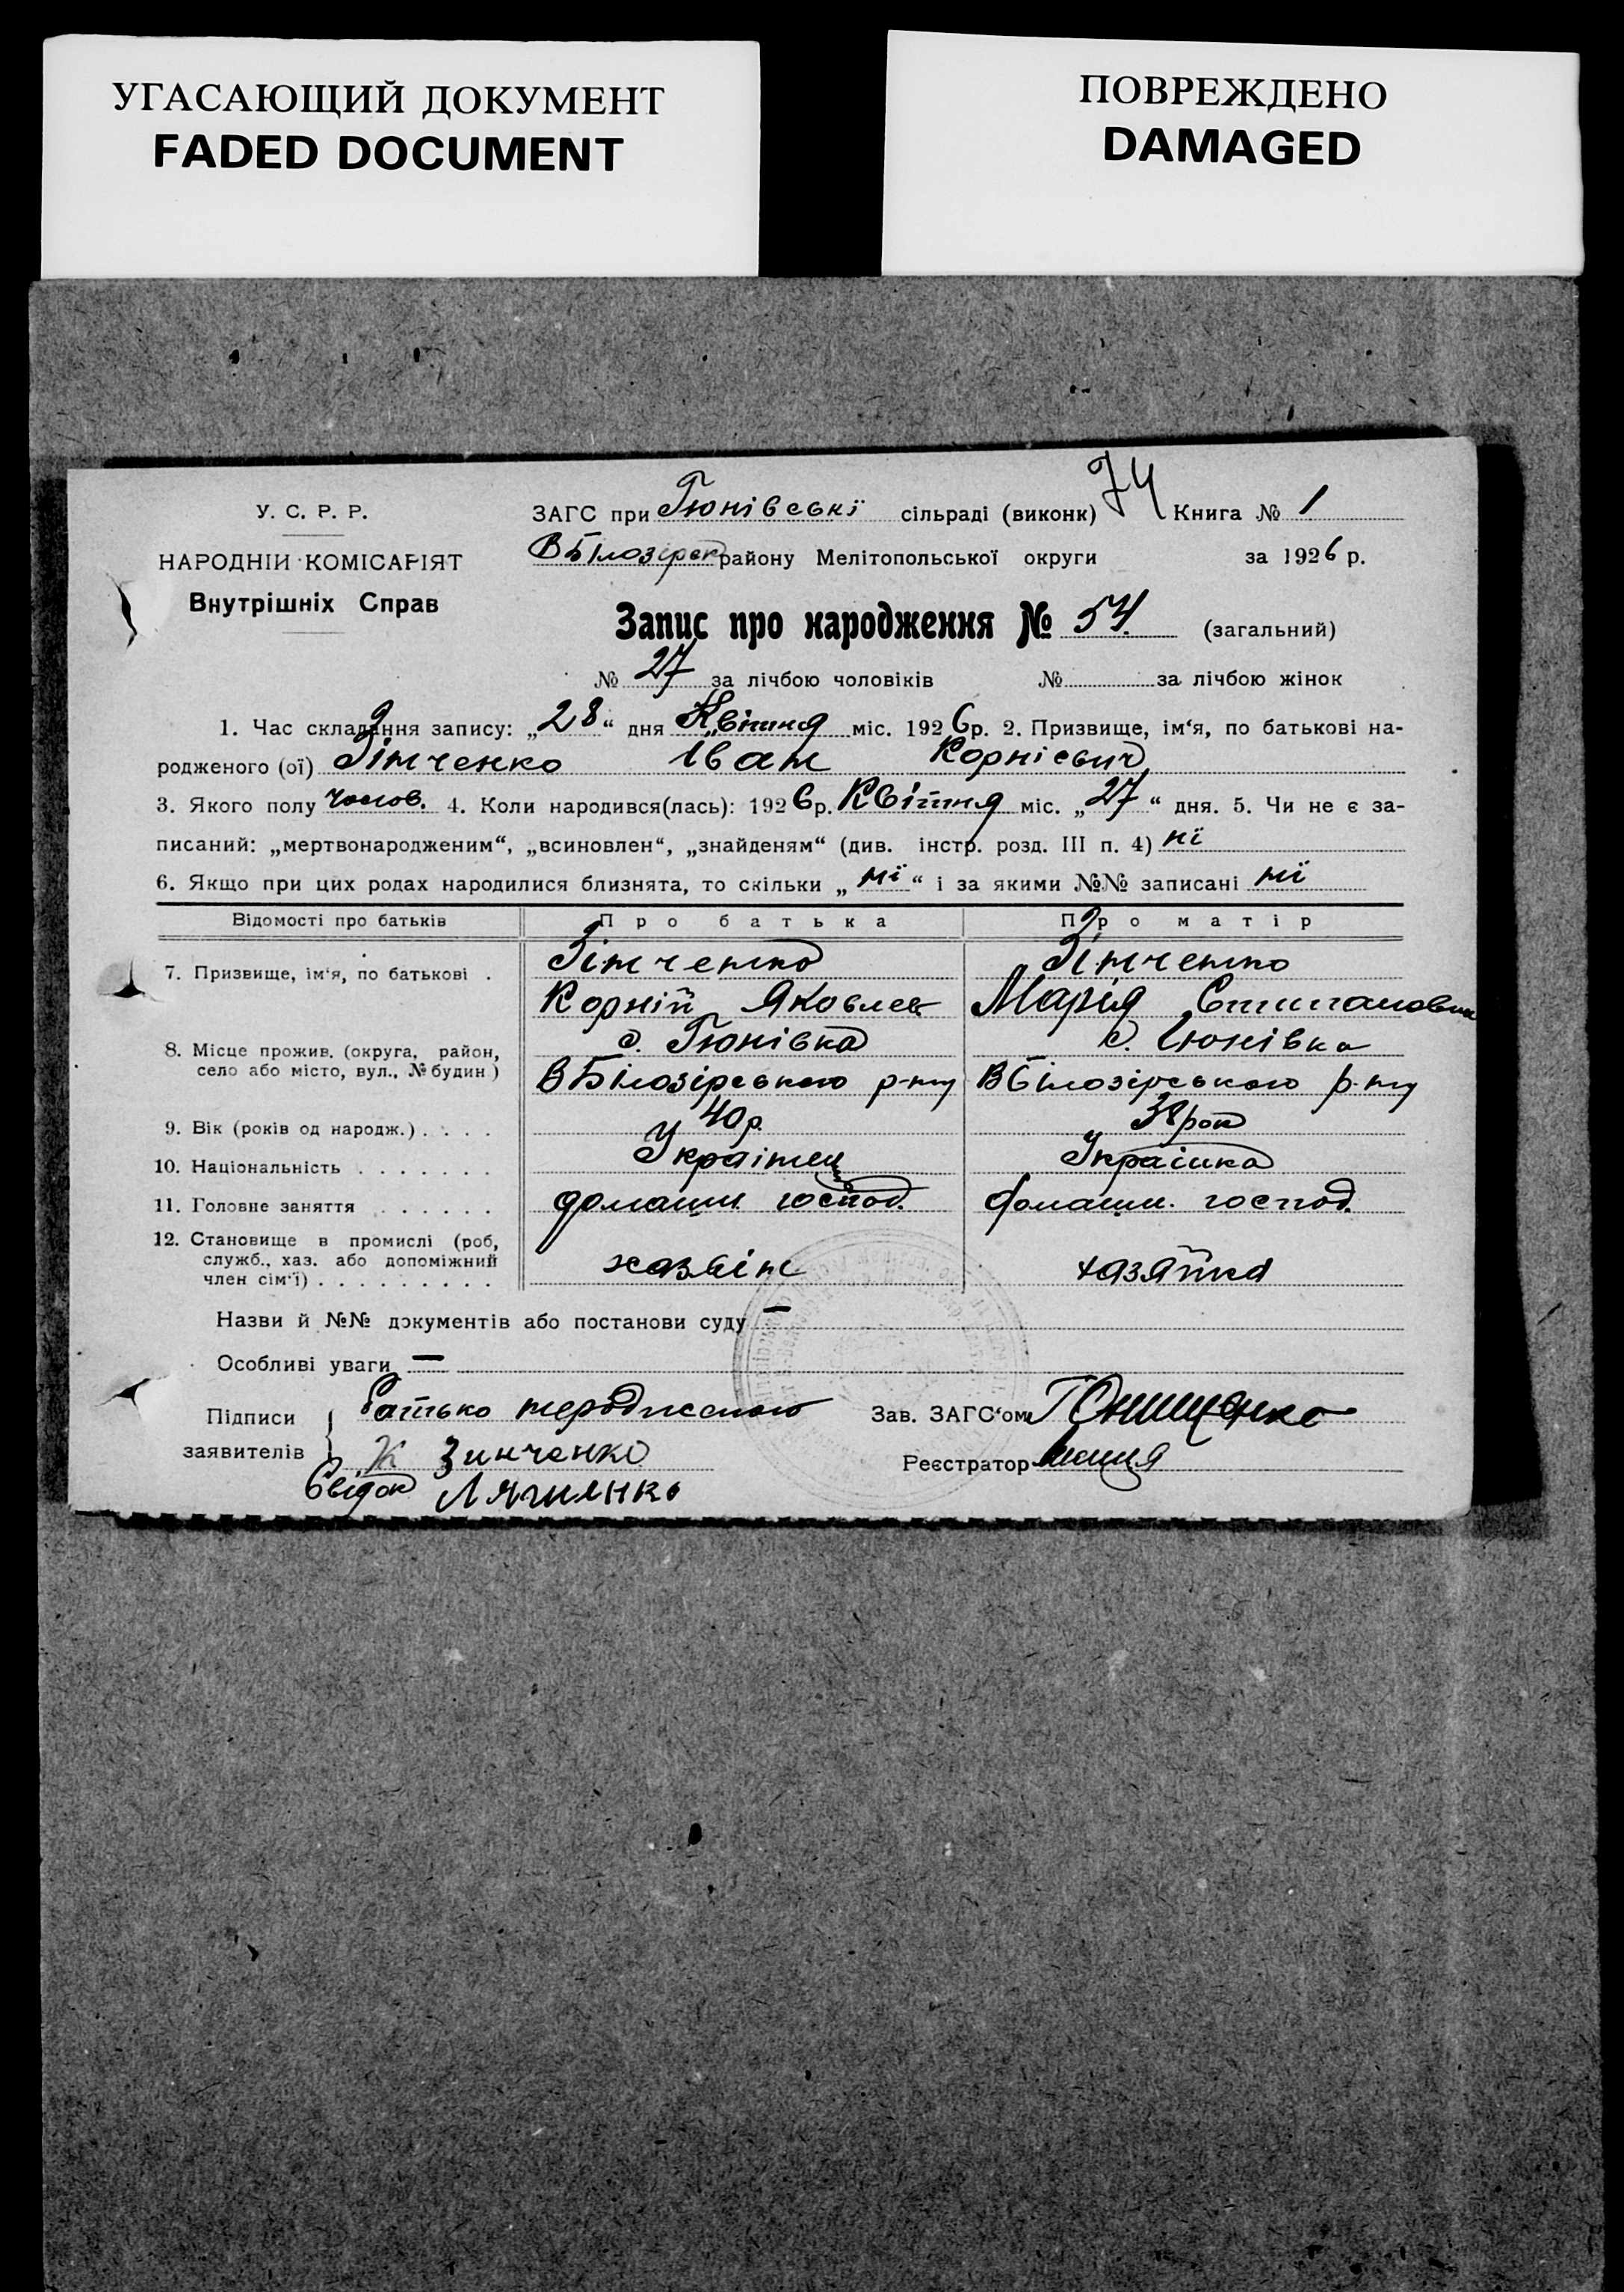 УГАСАЮЩИЙ ДОКУМЕНТ
FADED DOCUMENT
ПОВРЕЖДЕНО
DAMAGED
У. С. Р. Р.
НАРОДНІЙ КОМІСАРІЯТ
Внутрішніх Справ
ЗАГС при Гюнівські сільраді (виконк) 74 Книга № 1
ВБілозірськ району Мелітопольської округи за 1926 р.
Запис про народження № 54. (загальний)
№ 27 за лічбою чоловіків № за лічбою жінок
1. Час складання запису: „28“ дня Квітня міс. 1926 р. 2. Призвище, ім‘я, по батькові на-
родженого (ої) Зінченко Іван Корнієвич
3. Якого полу чолов. 4. Коли народився(лась): 1926 р. Квітня міс. „27“ дня. 5. Чи не є за-
писаний: „мертвонародженим“, „всиновлен“, „знайденям“ (див. інстр. розд. III п. 4) ні
6. Якщо при цих родах народилися близнята, то скільки „ні“ і за якими №№ записані ні
Відомості про батьків Про батька Про матір
7. Призвище, ім‘я, по батькові . Зінченко Зінченко
Корній Яковлев Марія Стипановна
8. Місце прожив. (округа, район, село або місто, вул., № будин) с. Гюнівка с. Гюнівка
ВБілозірського р-ну ВБілозірського р-ну
9. Вік (років од народж.) . . . . 40 р. 38 рок
10. Національність . . . . . . . Українец Украінка
11. Головне заняття . . . . . . домашн. господ. домашн. господ.
12. Становище в промислі (роб, служб., хаз. або допоміжний член сім‘ї) . . . . . . . . . хазяін хазяйка
Назви й №№ документів або постанови суду —
Особливі уваги —
Підписи заявителів Батько народженого
К Зинченко
Свідок Лягиенко
Зав. ЗАГС‘ом Онищенко
Реєстратор